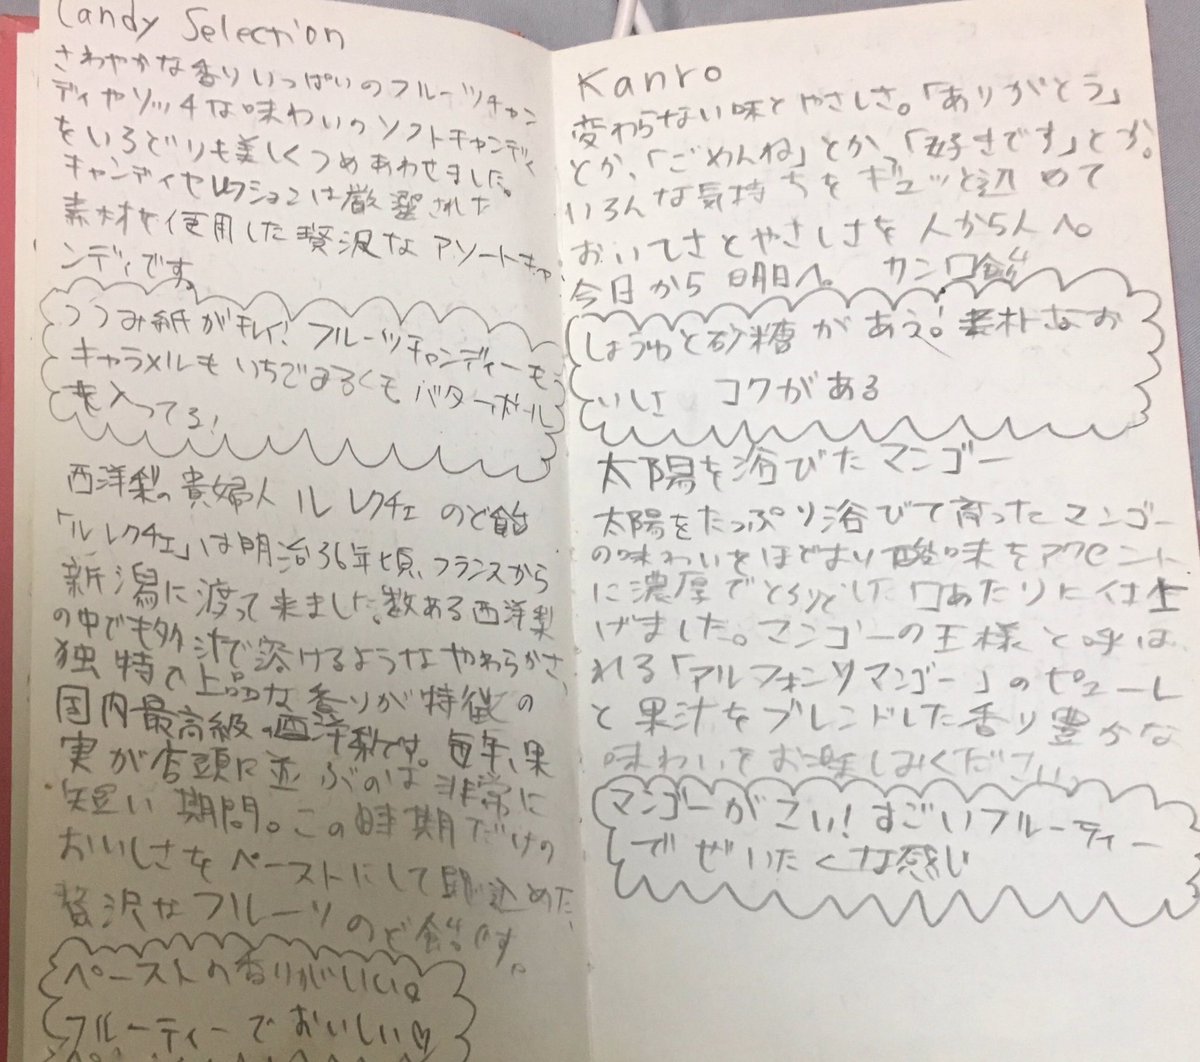 Candy Selection
さわやかな香りいっぱいのフルーツチャン
ディやリッチな味わいのソフトキャンディ
をいろどりも美しくつめあわせました。
キャンディセレクションは厳選された
素材を使用した贅沢なアソートキャ
ンディです。
つつみ紙がキレイ! フルーツチャンディーも
キャラメルもいちごみるくもバターボール
も入ってる!
西洋梨の貴婦人 ル レクチェ のど飴
「ル レクチェ」は明治36年頃、フランスから
新潟に渡って来ました。数ある西洋梨
の中でも多汁で溶けるようなやわらかさ、
独特の上品な香りが特徴の
国内最高級の西洋梨です。毎年、果
実が店頭に並ぶのは非常に
短い期間。この時期だけの
おいしさをペーストにして閉じ込めた、
贅沢なフルーツのど飴です。
ペーストの香りがいい。
フルーティーでおいしい♡
Kanro
変わらない味とやさしさ。「ありがとう」
とか、「ごめんね」とか「好きです」とか。
いろんな気持ちをギュッと込めて
おいしさとやさしさを人から人へ。
今日から明日へ。 カンロ飴
しょうゆと砂糖があう! 素朴なお
いしさ コクがある
太陽を浴びたマンゴー
太陽をたっぷり浴びて育ったマンゴー
の味わいをほどよい酸味をアクセント
に濃厚でとろりとした口あたりに仕上
げました。マンゴーの王様と呼ば
れる「アルフォンソマンゴー」のピューレ
と果汁をブレンドした香り豊かな
味わいをお楽しみください。
マンゴーがこい! すごいフルーティー
でぜいたくな感じ